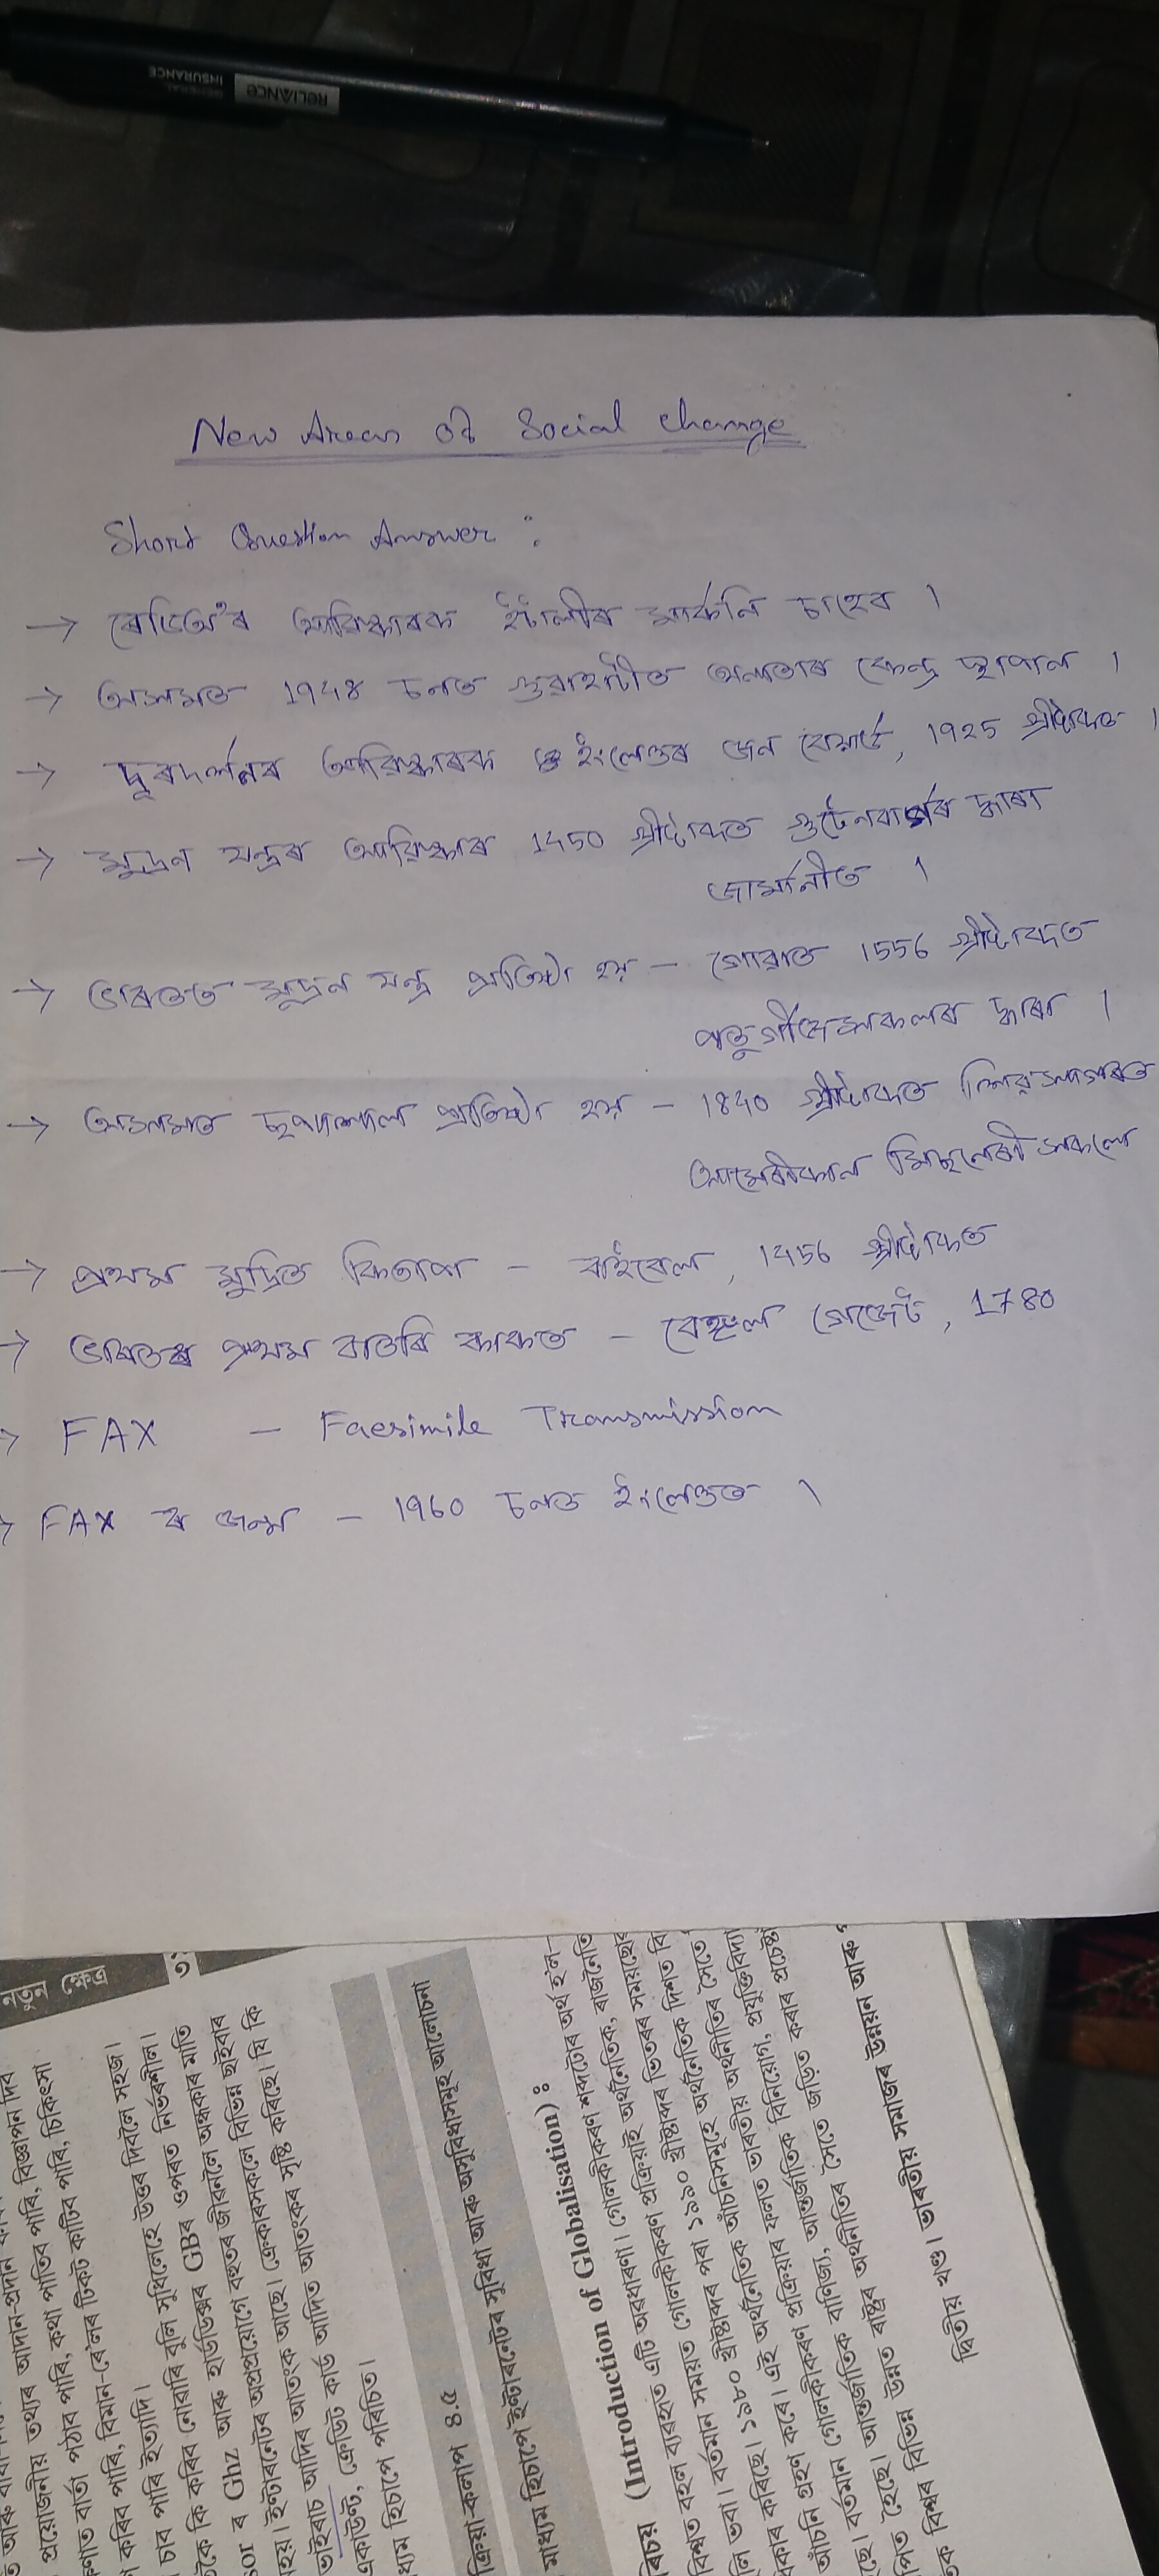 RELIANCE
GENERAL
INSURANCE
New Areas of Social change
Short Question Answer :
→ ৰেডিঅ'ৰ আৱিষ্কাৰক ইটালীৰ মাৰ্কনি চাহেব ।
→ অসমত 1948 চনত গুৱাহাটীত অনাতাৰ কেন্দ্ৰ স্থাপন ।
→ দূৰদৰ্শনৰ আৱিষ্কাৰক ইংলেণ্ডৰ জন বেয়াৰ্ড, 1925 খ্ৰীষ্টাব্দত ।
→ মুদ্ৰন যন্ত্ৰৰ আৱিষ্কাৰ 1450 খ্ৰীষ্টাব্দত গুটেনবাৰ্গৰ দ্বাৰা
জাৰ্মানীত ।
→ ভাৰতত মুদ্ৰন যন্ত্ৰ প্ৰতিষ্ঠা হয় – গোৱাত 1556 খ্ৰীষ্টাব্দত
পৰ্তুগীজসকলৰ দ্বাৰা ।
→ অসমত ছপাশাল প্ৰতিষ্ঠা হয় – 1840 খ্ৰীষ্টাব্দত শিৱসাগৰত
আমেৰীকান মিছনেৰী সকলে
→ প্ৰথম মুদ্ৰিত কিতাপ – বাইবেল, 1456 খ্ৰীষ্টাব্দত
→ ভাৰতৰ প্ৰথম বাতৰি কাকত – বেঙ্গল গেজেট, 1780
→ FAX – Facsimile Transmission
→ FAX ৰ জন্ম – 1960 চনত ইংলেণ্ডত ।
নতুন ক্ষেত্ৰ
প্ৰয়োজনীয় তথ্যৰ আদান-প্ৰদান
বাৰ্তা পঠাব পাৰি, কথা পাতিব পাৰি, বিজ্ঞাপন দিব
কৰিব পাৰি, বিমান-ৰে'লৰ টিকট কাটিব পাৰি, চিকিৎসা
চাব পাৰি ইত্যাদি।
কি কৰিব (নোৱাৰি বুলি সুধিলেহে উত্তৰ দিবলৈ সহজ।
ৰ Ghz আৰু হাৰ্ডডিস্কৰ GBৰ ওপৰত নিৰ্ভৰশীল।
হয়। ইণ্টাৰনেটৰ অপপ্ৰয়োগে বহুতৰ জীৱনলৈ অন্ধকাৰ মাতি
ভাইৰাচ আদিৰ আতংক আছে। ক্ৰেকাৰসকলে বিভিন্ন ছাইবাৰ
একাউন্ট, ক্ৰেডিট কাৰ্ড আদিত আতংকৰ সৃষ্টি কৰিছে। যি কি
মাধ্যম হিচাপে পৰিচিত।
ক্ৰিয়া-কলাপ ৪.৫
মাধ্যম হিচাপে ইণ্টাৰনেটৰ সুবিধা আৰু অসুবিধাসমূহ আলোচনা
(Introduction of Globalisation) ঃ
বিশ্বত বহুল ব্যৱহৃত এটি অৱধাৰণা। গোলকীকৰণ শব্দটোৰ অৰ্থ হ'ল–
ভৱা। বৰ্তমান সময়ত গোলকীকৰণ প্ৰক্ৰিয়াই অৰ্থনৈতিক, ৰাজনৈতি
কৰিছে। ১৯৮০ খ্ৰীষ্টাব্দৰ পৰা ১৯৯০ খ্ৰীষ্টাব্দৰ ভিতৰৰ সময়ছোৱ
গ্ৰহণ কৰে। এই অৰ্থনৈতিক আঁচনিসমূহে অৰ্থনৈতিক দিশত বি
আঁচনি গ্ৰহণ কৰে। প্ৰক্ৰিয়াৰ ফলত ভাৰতীয় অৰ্থনীতিৰ সৈতে
হৈছে। বৰ্তমান গোলকীকৰণ প্ৰযুক্তিবিদ্যা
আন্তৰ্জাতিক বাণিজ্য, আন্তৰ্জাতিক বিনিয়োগ,
বিশ্বৰ বিভিন্ন উন্নত ৰাষ্ট্ৰৰ অৰ্থনীতিৰ সৈতে জড়িত কৰাৰ প্ৰচেষ্টা
দ্বিতীয় খণ্ড। ভাৰতীয় সমাজৰ উন্নয়ন আৰু